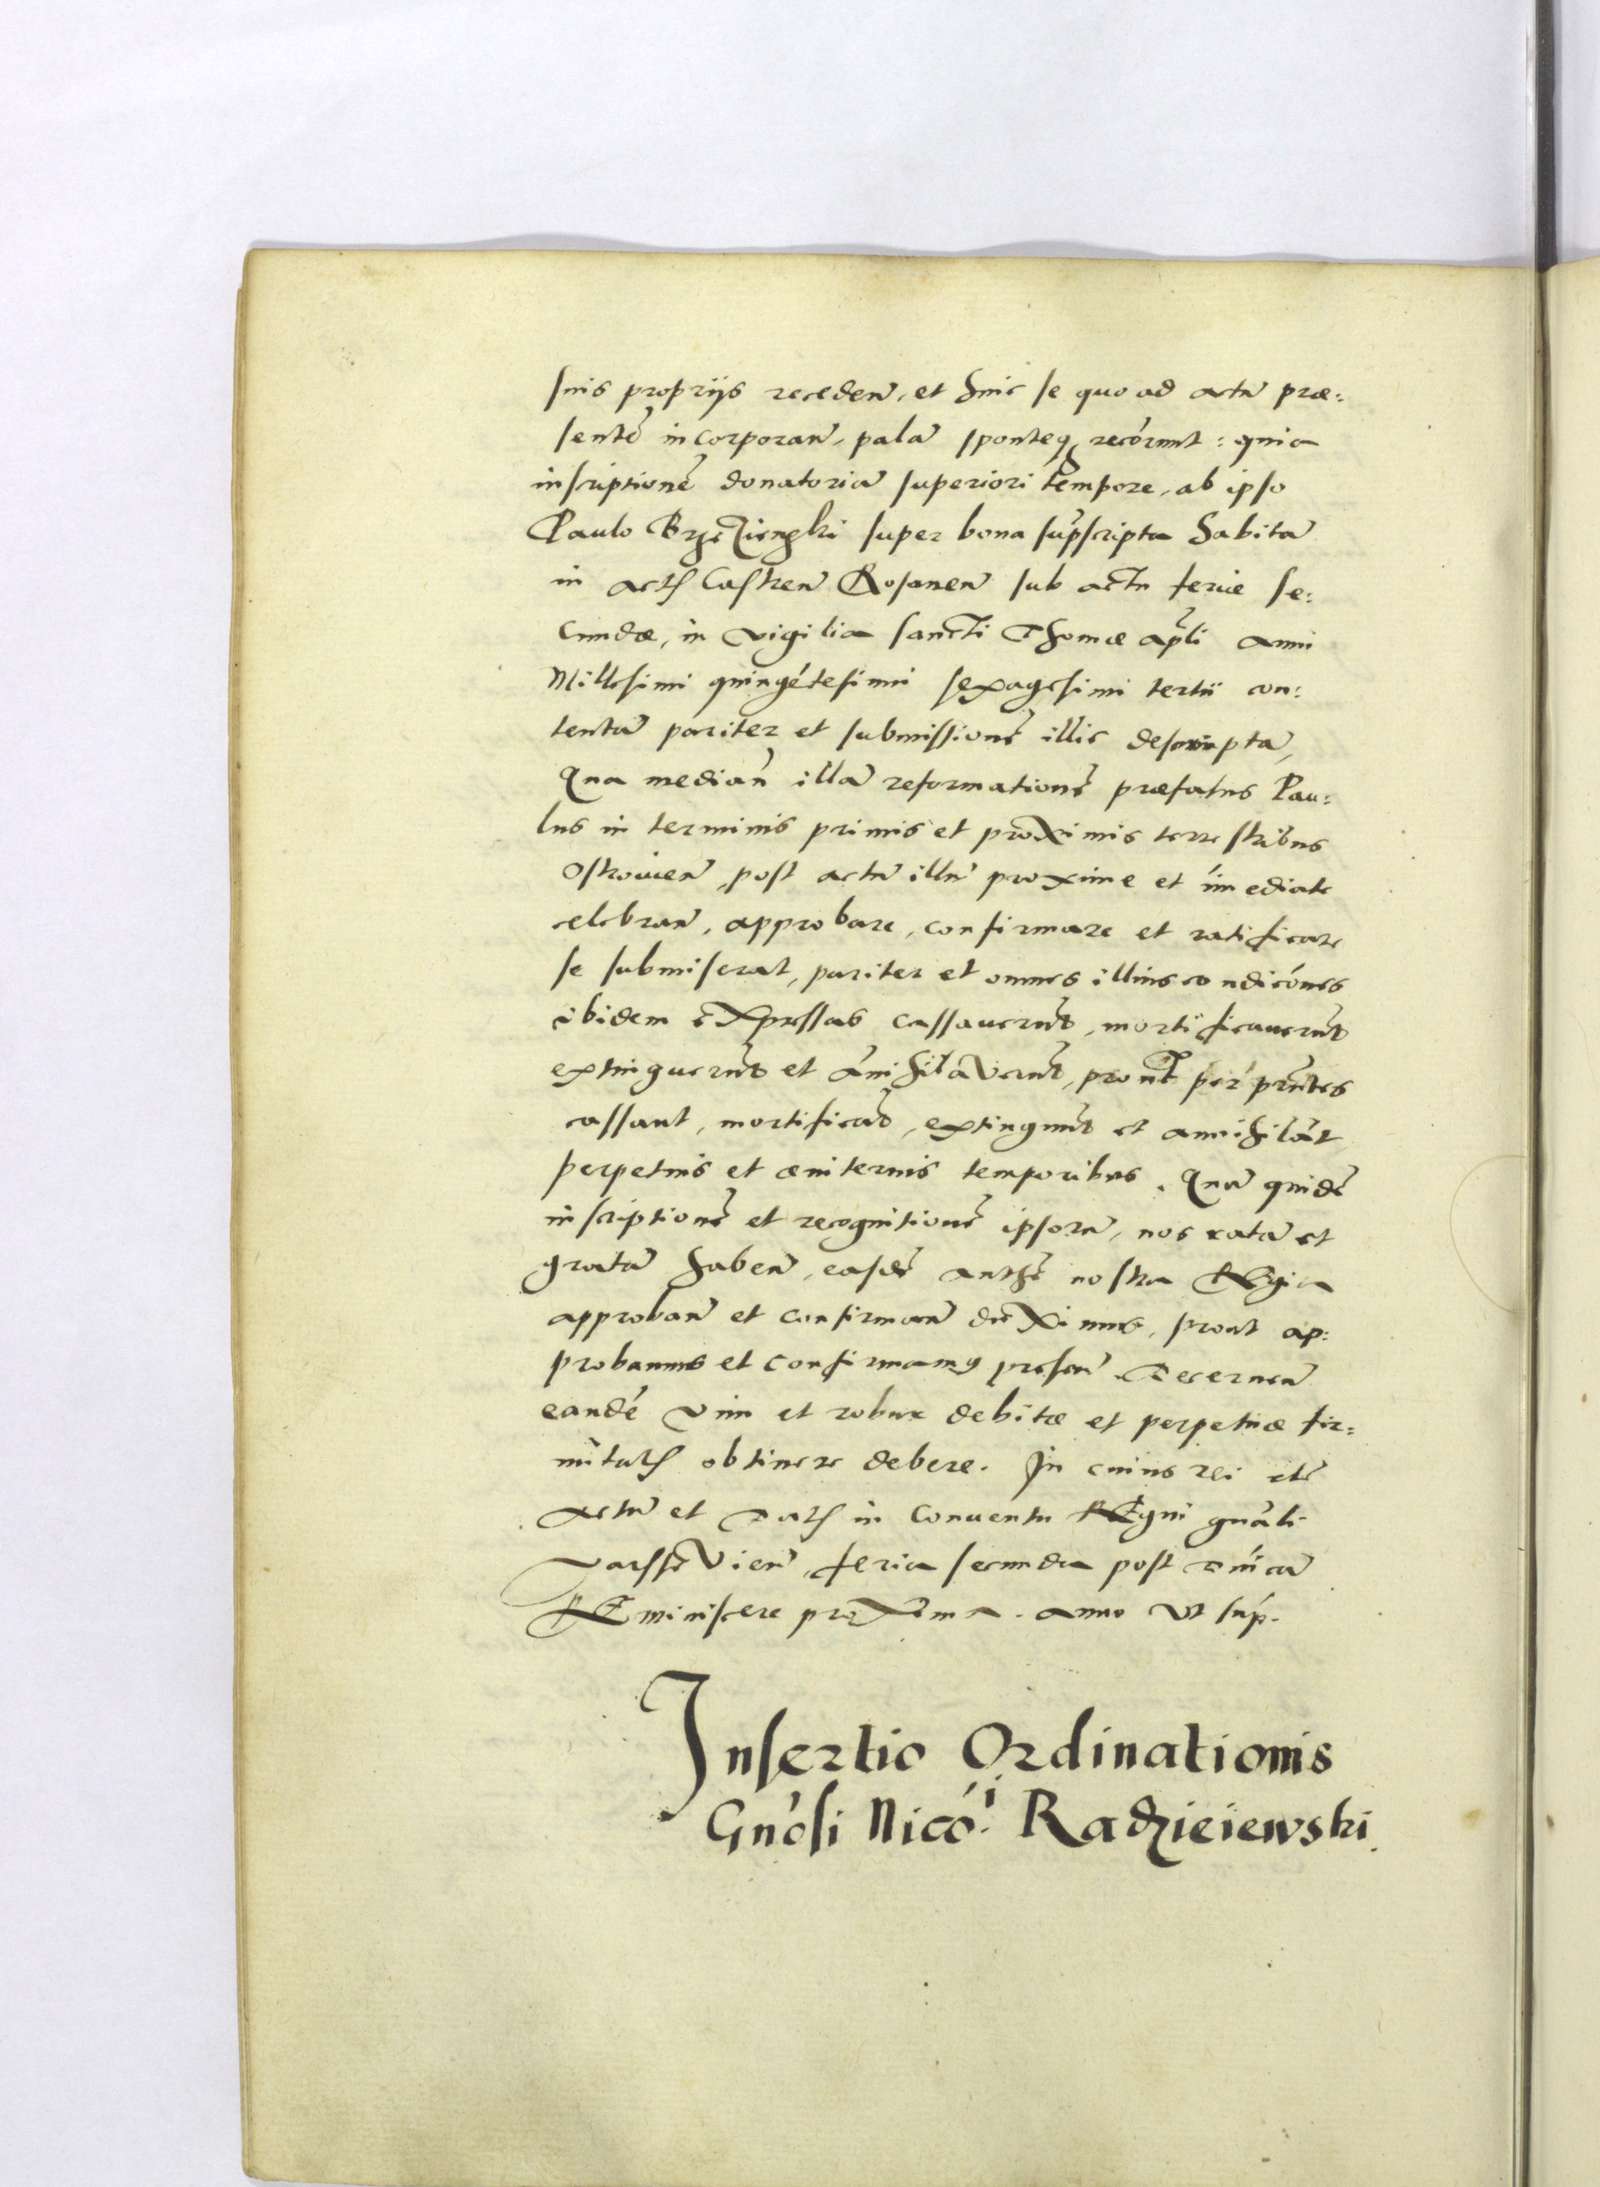 suis proprijs receden̄, et huic se quo ad actū præ:
sentē incorporan̄, palā sponteq́ȝ recōrunt: quia
inscriptionē donatoriā superiori tempore, ab ipso
Paulo Brzezienski super bona supscripta habitā
in actis Castren̄ Rosanen̄ sub actu feriæ se:
cundæ, in vigilia sancti Thomæ apli anni
Millesimi quingētesimi sexagesimi tertii con:
tentā pariter et submissionē illic descriptā,
Qua median̄ illā reformationē præfatus Pau:
lus in terminis primis et proximis terrestribus
Ostrouien̄, post actū illū proxime et īmediate
celebran̄, approbare, confirmare et ratificare
se submiserat, pariter et omnes illius condicōnes
ibidem expressas cassauerūt, mortificauerūt
extinguerūt et ānihilaverūt, prout per pn̄tes
cassant, mortificāt, extingunt et annihilāt
perpetuis et æuiternis temporibus. Quā quidē
inscriptionē et recognitionē ipsorū, nos ratā et
gratā haben̄, easdē authē nostra Regia
approban̄ et confirman̄ duximus, prout ap:
probamus et confirmamus presen̄. Decernen̄
eandē vim et robur debitæ et perpetuæ fir:
mitatis obtinere debere. In cuius rei etc̄
Actū et Datis in Conuentu Regni gnāli
Varssevien̄, feria secunda post Dnīcā
Reminiscere proxima. anno vt sup.
Insertio Ordinationis
Gnōsi Nicō.i Radzieiewski.